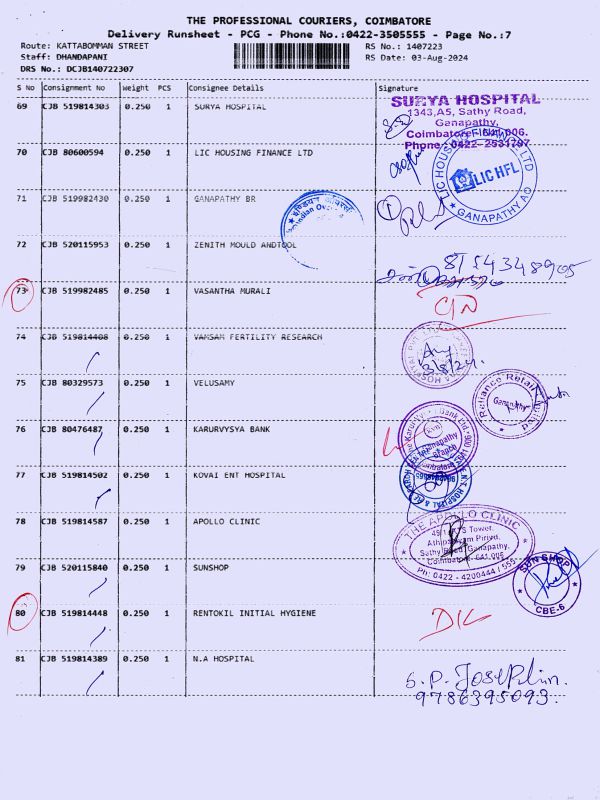 THE PROFESSIONAL COURIERS, COIMBATORE
Delivery Runsheet - PCG - Phone No.:0422-3505555 - Page No.:7
Route: KATTABOMMAN STREET
Staff: DHANDAPANI
DRS No.: DCJB140722307
RS No.: 1407223
RS Date: 03-Aug-2024
S No Consignment No Weight PCS Consignee Details Signature
69 CJB 519814303 0.250 1 SURYA HOSPITAL
SURYA HOSPITAL
1343,A5, Sathy Road,
Ganapathy,
Coimbatore - 641 006.
Phone : 0422-2531707
70 CJB 80600594 0.250 1 LIC HOUSING FINANCE LTD
LIC HOUSING FINANCE LTD
LIC HFL
GANAPATHY AO
71 CJB 519982430 0.250 1 GANAPATHY BR
72 CJB 520115953 0.250 1 ZENITH MOULD ANDTOOL
73 CJB 519982485 0.250 1 VASANTHA MURALI
74 CJB 519814408 0.250 1 VAMSAM FERTILITY RESEARCH
3/8/24.
75 CJB 80329573 0.250 1 VELUSAMY
Reliance Retail Limited
Ganapathy
76 CJB 80476487 0.250 1 KARURVYSYA BANK
The Karur Vysya Bank Ltd.
Ganapathy
Coimbatore
77 CJB 519814502 0.250 1 KOVAI ENT HOSPITAL
78 CJB 519814587 APOLLO CLINIC 0.250 1
THE APOLLO CLINIC
Tower,
Sathy Road, Ganapathy,
Coimbatore - 641 006
Ph: 0422 - 4200444 / 555
79 CJB 520115840 0.250 1 SUNSHOP
SUN SHOP
CBE-6
80 CJB 519814448 0.250 1 RENTOKIL INITIAL HYGIENE
DIL
81 CJB 519814389 0.250 1 N.A HOSPITAL
S.P. Josephin.
9786395093.